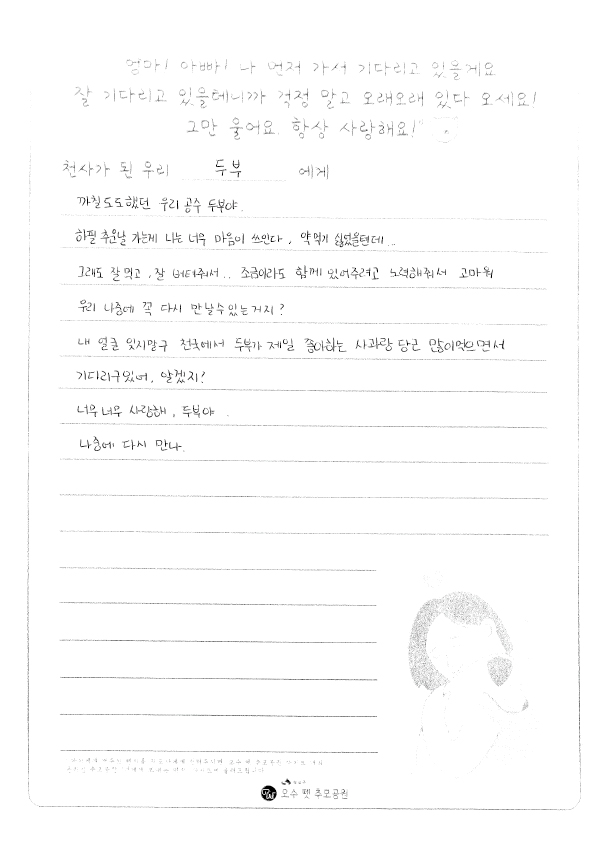 엄마! 아빠! 나 먼저 가서 기다리고 있을게요
잘 기다리고 있을테니까 걱정 말고 오래오래 있다 오세요!
그만 울어요. 항상 사랑해요!"
천사가 된 우리 두부 에게
까칠도도했던 우리 공수 두부야.
하필 추운날 가는게 나는 너무 마음이 쓰인다, 약먹기 싫었을텐데...
그래도 잘 먹고, 잘 버텨줘서.. 조금이라도 함께 있어주려고 노력해줘서 고마워
우리 나중에 꼭 다시 만날수있는거지?
내 얼굴 잊지말구 천국에서 두부가 제일 좋아하는 사과랑 당근 많이먹으면서
기다리구있어, 알겠지?
너무너무 사랑해, 두부야.
나중에 다시 만나.
오수 펫 추모공원